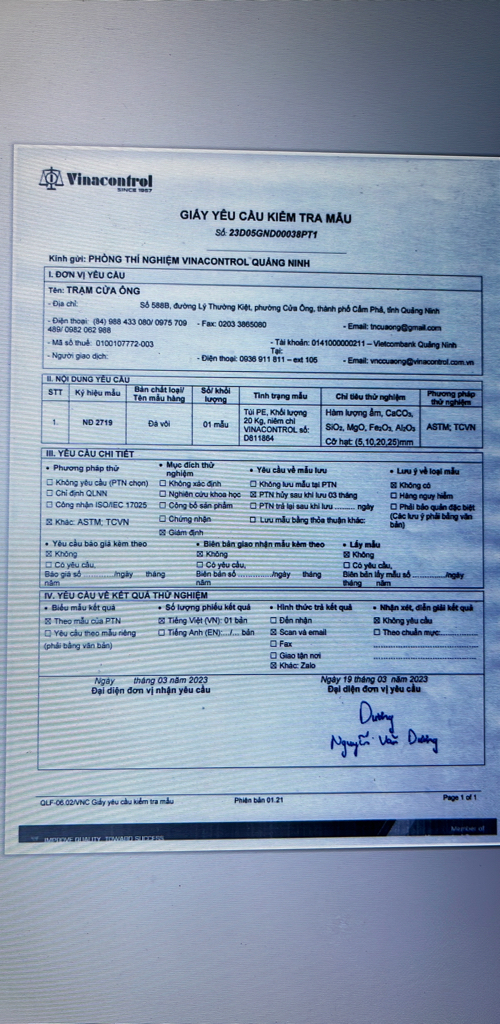 Vinacontrol
SINCE 1957
GIẤY YÊU CẦU KIỂM TRA MẪU
Số: 23D05GND00038PT1
Kính gửi: PHÒNG THÍ NGHIỆM VINACONTROL QUẢNG NINH
I. ĐƠN VỊ YÊU CẦU
Tên: TRẠM CỬA ÔNG
- Địa chỉ: Số 588B, đường Lý Thường Kiệt, phường Cửa Ông, thành phố Cẩm Phả, tỉnh Quảng Ninh
- Điện thoại: (84) 988 433 080/ 0975 709 489/ 0982 062 988 - Fax: 0203 3865080 - Email: tncuaong@gmail.com
- Mã số thuế: 0100107772-003 - Tài khoản: 0141000000211 – Vietcombank Quảng Ninh
Tại:
- Người giao dịch: - Điện thoại: 0936 911 811 – ext 105 - Email: vnccuaong@vinacontrol.com.vn
II. NỘI DUNG YÊU CẦU
STT Ký hiệu mẫu Bản chất loại/ Tên mẫu hàng Số/ khối lượng Tình trạng mẫu Chỉ tiêu thử nghiệm Phương pháp thử nghiệm
1. ND 2719 Đá vôi 01 mẫu Túi PE, Khối lượng 20 Kg, niêm chì VINACONTROL số: D811864 Hàm lượng ẩm, CaCO₃, SiO₂, MgO, Fe₂O₃, Al₂O₃ Cỡ hạt: (5,10,20,25)mm ASTM; TCVN
III. YÊU CẦU CHI TIẾT
• Phương pháp thử
☐ Không yêu cầu (PTN chọn)
☐ Chỉ định QLNN
☐ Công nhận ISO/IEC 17025
☒ Khác: ASTM; TCVN
• Mục đích thử nghiệm
☐ Không xác định
☐ Nghiên cứu khoa học
☐ Công bố sản phẩm
☐ Chứng nhận
☒ Giám định
• Yêu cầu về mẫu lưu
☐ Không lưu mẫu tại PTN
☒ PTN hủy sau khi lưu 03 tháng
☐ PTN trả lại sau khi lưu ......... ngày
☐ Lưu mẫu bằng thỏa thuận khác:
• Lưu ý về loại mẫu
☒ Không có
☐ Hàng nguy hiểm
☐ Phải bảo quản đặc biệt
(Các lưu ý phải bằng văn bản)
• Yêu cầu báo giá kèm theo
☒ Không
☐ Có yêu cầu,
Báo giá số /ngày tháng
năm
• Biên bản giao nhận mẫu kèm theo
☒ Không
☐ Có yêu cầu,
Biên bản số ................/ngày tháng
năm
• Lấy mẫu
☒ Không
☐ Có yêu cầu,
Biên bản lấy mẫu số ................/ngày
tháng năm
IV. YÊU CẦU VỀ KẾT QUẢ THỬ NGHIỆM
• Biểu mẫu kết quả
☒ Theo mẫu của PTN
☐ Yêu cầu theo mẫu riêng
(phải bằng văn bản)
• Số lượng phiếu kết quả
☒ Tiếng Việt (VN): 01 bản
☐ Tiếng Anh (EN):.../... bản
• Hình thức trả kết quả
☐ Đến nhận
☒ Scan và email
☐ Fax
☐ Giao tận nơi
☒ Khác: Zalo
• Nhận xét, diễn giải kết quả
☒ Không yêu cầu
☐ Theo chuẩn mực:..............
Ngày tháng 03 năm 2023
Đại diện đơn vị nhận yêu cầu
Ngày 19 tháng 03 năm 2023
Đại diện đơn vị yêu cầu
Dương
Nguyễn Văn Dương
QLF-06.02/VNC Giấy yêu cầu kiểm tra mẫu Phiên bản 01.21 Page 1 of 1
IMPROVE QUALITY, TOWARD SUCCESS Member of